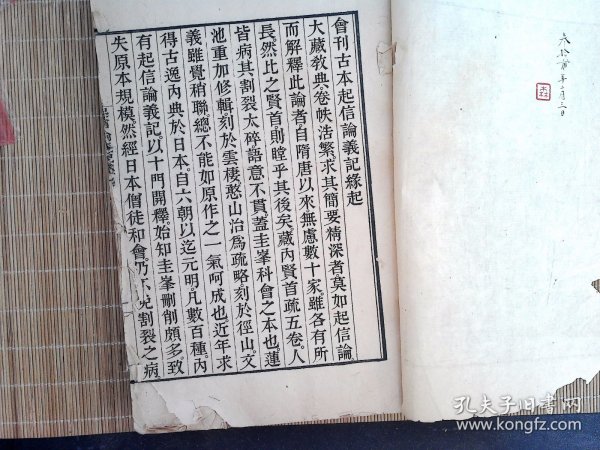 會刊古本起信論義記緣起
大藏教典卷帙浩繁求其簡要精深者莫如起信論
而解釋此論者自隋唐以來無慮數十家雖各有所
長然比之賢首則瞠乎其後矣藏內賢首疏五卷人
皆病其割裂太碎語意不貫蓋圭峯科會之本也蓮
池重加修輯刻於雲棲憨山治爲疏略刻於徑山文
義雖覺稍聯總不能如原作之一氣呵成也近年求
得古逸內典於日本自六朝以迄元明凡數百種內
有起信論義記以十門開釋始知圭峯刪削頗多致
失原本規模然經日本僧徒和會仍不免割裂之病
年二月三日
孔夫子旧书网
www.kongfz.com